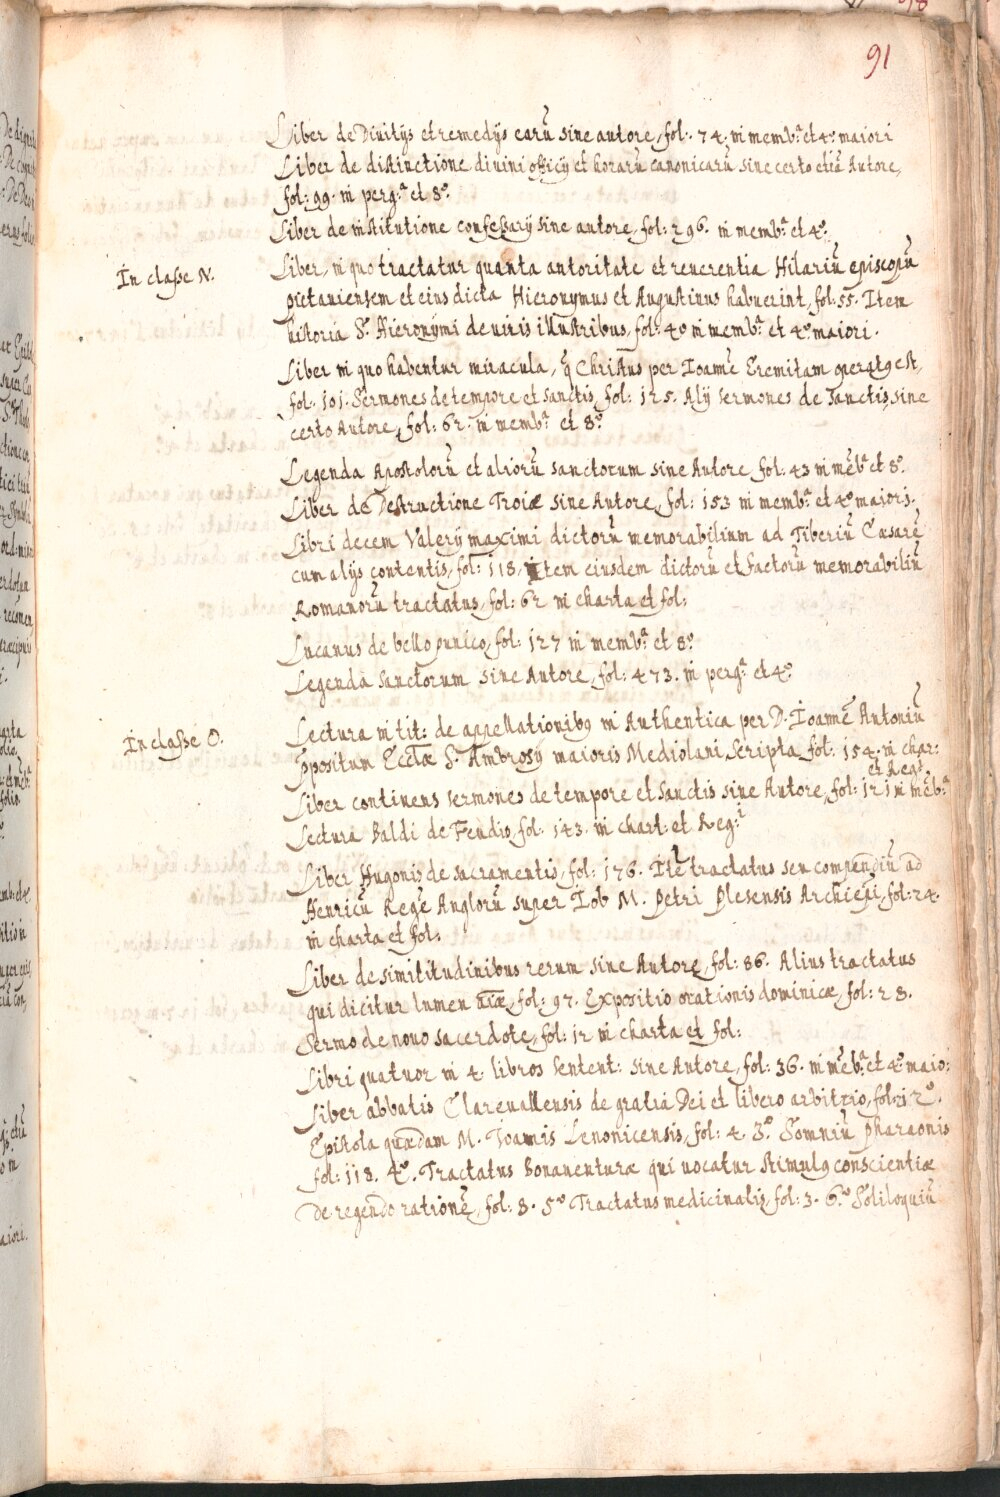 91
Liber de Divitijs et remedijs earū sine autore, fol: 74. in memb.ª et 4º maiori
Liber de distinctione divini officij et horarū canonicarū sine certo etiā Autore,
fol: 99. in perg.ª et 8º.
Liber de institutione confessarij sine autore, fol: 296. in memb.ª et 4º.
In classe N.
Liber, in quo tractatur quanta autoritate et reuerentia Hilariū episcopū
pictauiensem et eius dicta Hieronymus et Augustinus habuerint, fol: 55. Item
historia S. Hieronymi de uiris illustribus, fol: 40 in memb.ª et 4º maiori.
Liber in quo habentur miracula, q̄ Christus per Ioannē Eremitam operatꝰ est,
fol. 101. Sermones de tempore et sanctis, fol: 125. Alij sermones de Sanctis, sine
certo Autore, fol: 62. in memb.ª et 8º
Legenda Apostolorū et aliorū sanctorum sine Autore, fol: 43 in mēb.ª et 8º.
Liber de Destructione Troiæ sine Autore, fol: 153 in memb.ª et 4º maiori.
Libri decem Valerij maximi dictorū memorabilium ad Tiberiū Cæsarē
cum alijs contentis, fol: 118, item eiusdem dictorū et factorū memorabiliū
Romanorū tractatus, fol: 62 in charta et fol:
Lucanus de bello punico, fol: 127 in memb.ª et 8º
Legenda sanctorum sine Autore, fol: 473. in perg.ª et 4º
In classe O.
Lectura in tit: de appellationibꝰ in Authentica per D. Ioannē Antoniū
ppositum Eccłæ S. Ambrosij maioris Mediolani, Scripta, fol: 154. in char:
et Reg.ª
Liber continens sermones de tempore et sanctis sine Autore, fol: 121 in mēb.ª
Lectura Baldi de Feudis, fol: 143. in chart: et Reg.ª
Liber Hugonis de sacramentis, fol: 176. Itē tractatus seu compendiū ad
Henricū Regē Anglorū super Iob M. Petri Plesensis Archiep̄i, fol: 24.
in charta et fol:
Liber de similitudinibus rerum sine Autore, fol: 86. Alius tractatus
qui dicitur lumen aīæ, fol: 97. Expositio orationis dominicæ, fol: 28.
Sermo de nouo sacerdote, fol: 12 in charta et fol:
Libri quatuor in 4. libros sentent: sine Autore, fol: 36. in mēb.ª et 4º maio:
Liber abbatis Clareuallensis de gratia Dei et libero arbitrio, fol: 21 2º.
Epistola quædam M. Ioannis Lenonicensis, fol: 4. 3º Somniū Pharaonis
fol: 118. 4º. Tractatus Bonauenturæ qui uocatur stimulꝰ conscientiæ
De regendo rationē, fol: 8. 5º Tractatus medicinalis, fol: 3. 6º Soliloquiū